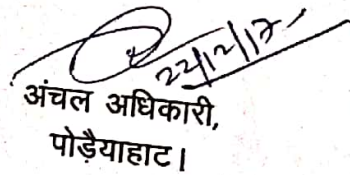 22/12/17
अंचल अधिकारी,
पोड़ैयाहाट।